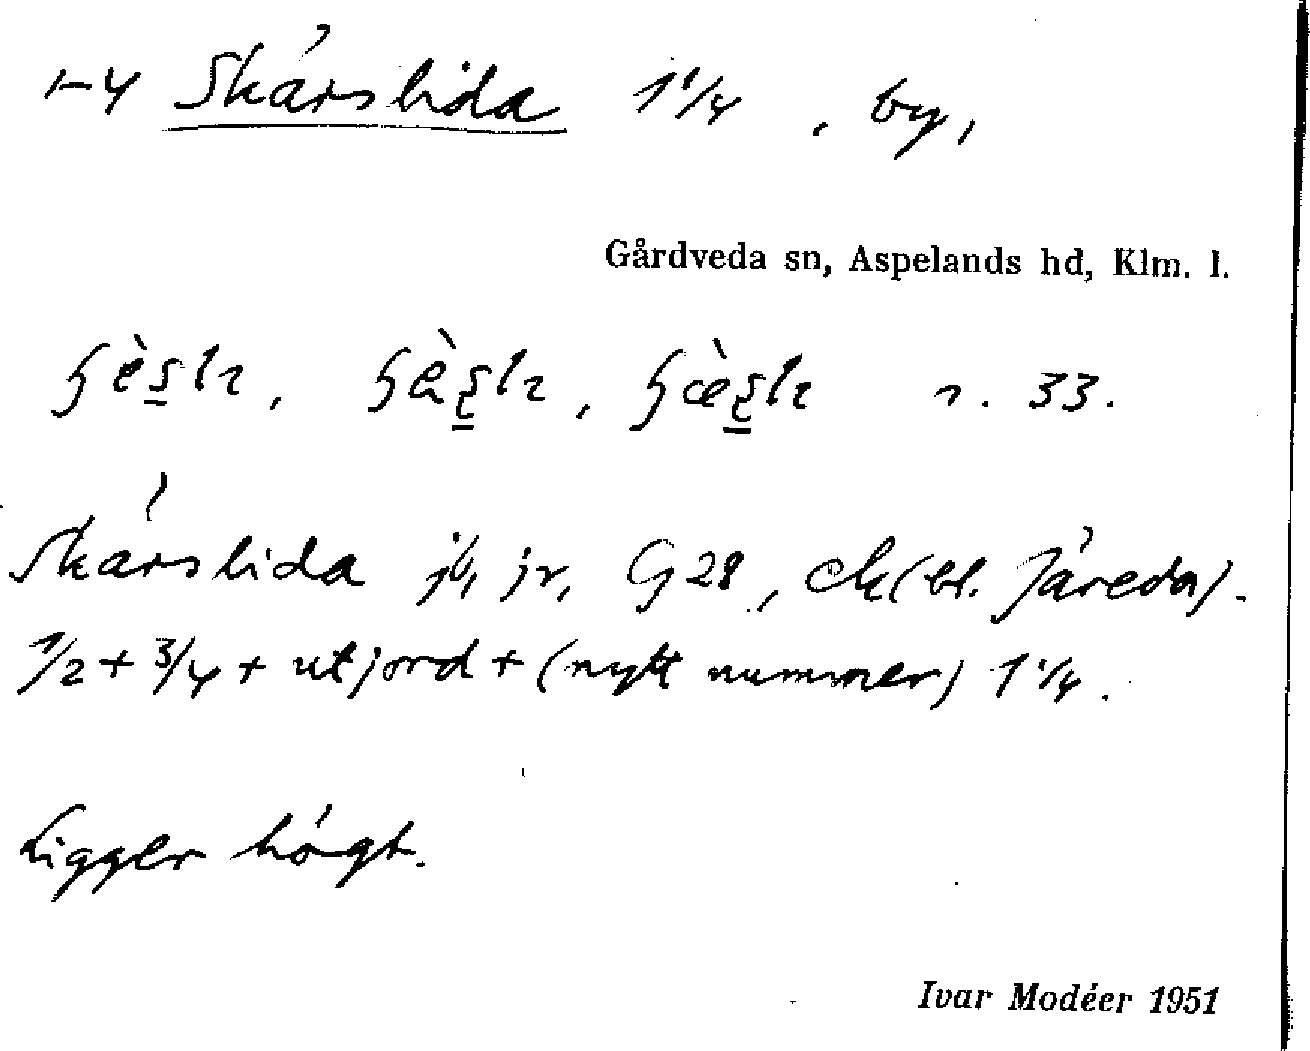 1-4 Skärslida 1 1/4, by,
Gårdveda sn, Aspelands hd, Klm. l.
r. 33.
Skärslida jb, jr, G 28, ek (bl. Järeda).
1/2 + 3/4 + utjord + (nytt nummer) 1 1/4.
Ligger högt.
Ivar Modéer 1951